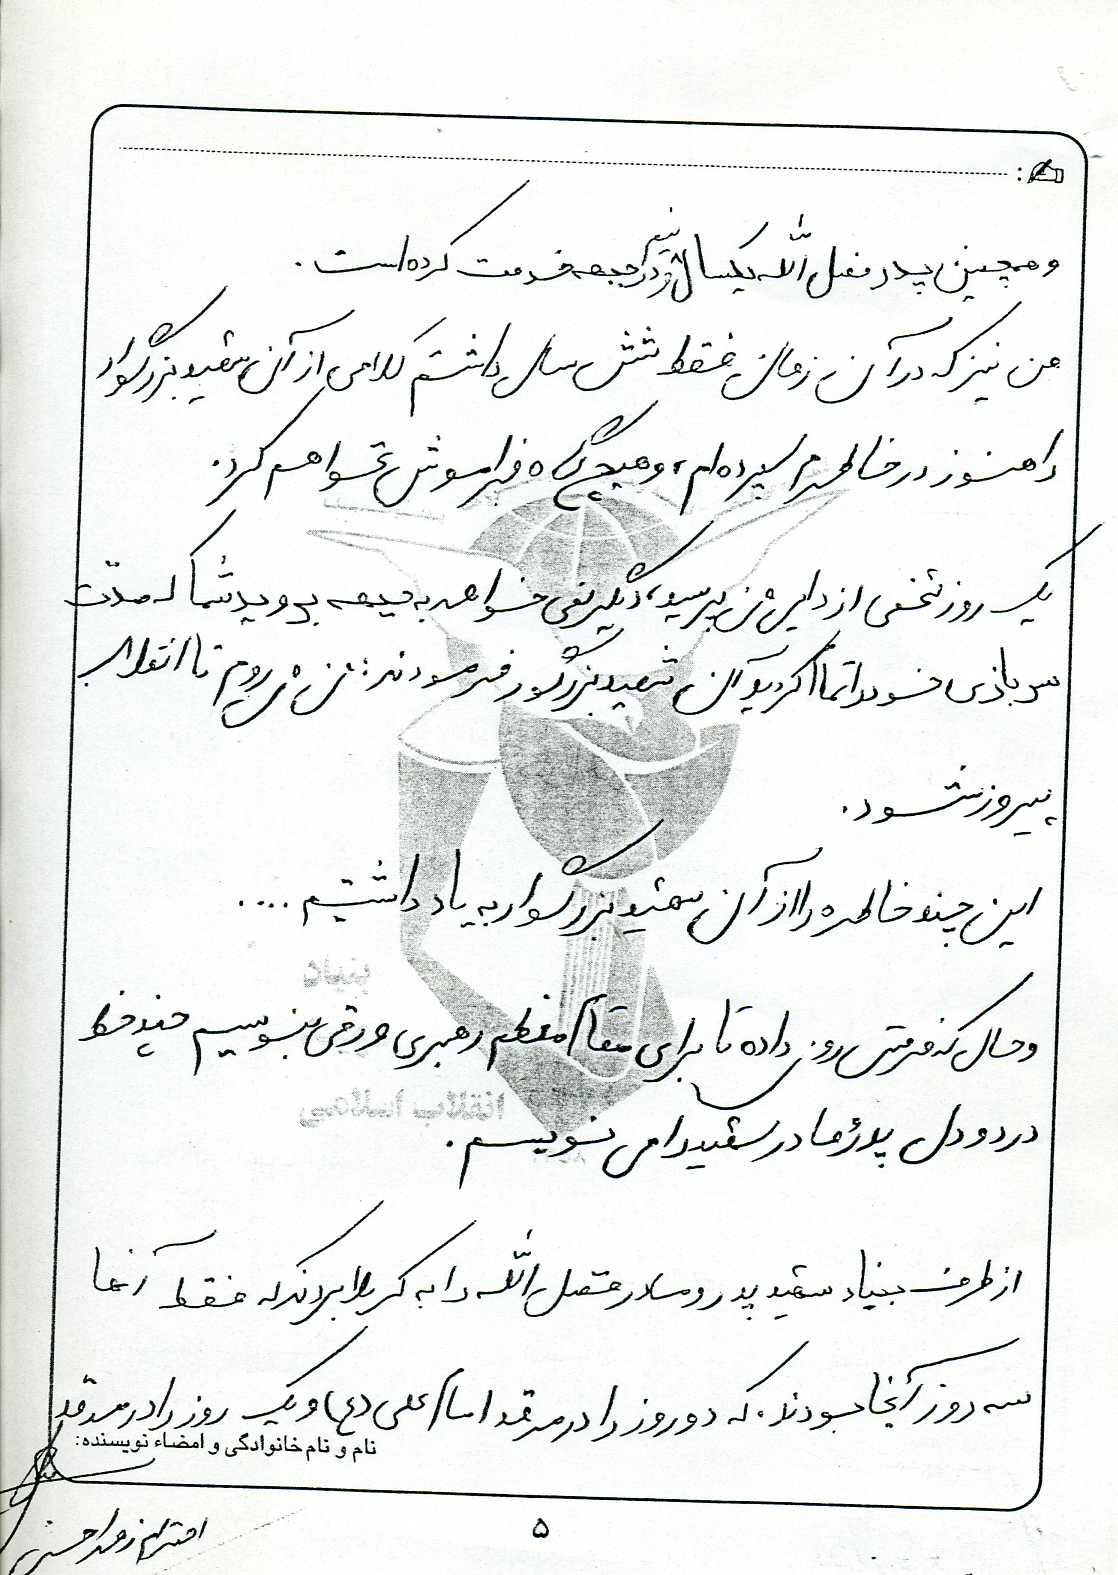 و همچنین پدر فضل الله یکسال و نیم در جبهه خدمت کرده است.
من نیز که در آن زمان فقط شش سال داشتم کلامی از آن شهید بزرگوار
را هنوز در خاطرم سپرده‌ام، و هیچ گاه فراموش نخواهم کرد.
یک روز شخصی از دایی من پرسید، دیگر نمی خواهد به جبهه بروید شما که مدّت
سربازی خود را تمام کردید آن شهید بزرگوار فرمودند: من می روم تا انقلاب
پیروز شود.
این چند خاطره را از آن شهید بزرگوار به یاد داشتیم ....
و حال که فرصتی روی داده تا برای مقام معظم رهبری ورقی بنویسیم چند خط
درد و دل پدر و مادر شهید را می نویسم.
از طرف بنیاد شهید پدر و مادر فضل الله را به کربلا بردند که فقط آنها
سه روز آنجا بودند. که دو روز را در مرقد امام علی (ع) و یک روز را در مرقد
نام و نام خانوادگی و امضاء نویسنده:
۵
بنیاد
انقلاب اسلامی